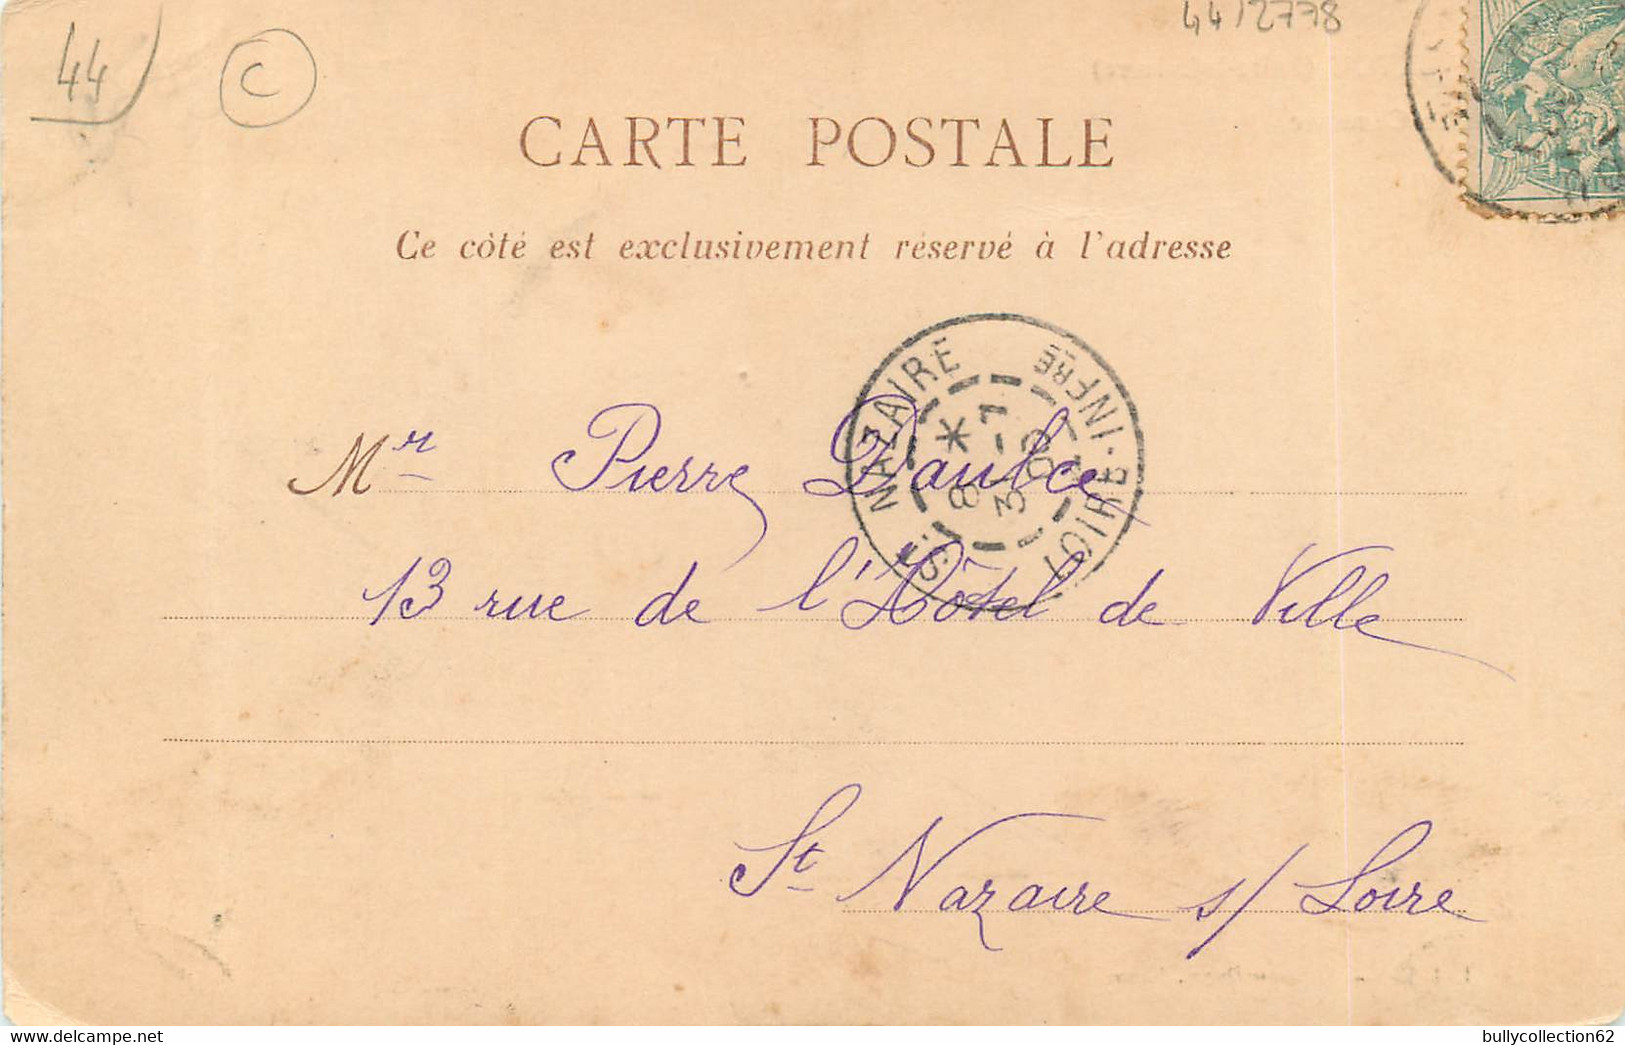 44
C
44/2778
CARTE POSTALE
Ce côté est exclusivement réservé à l'adresse
ST NAZAIRE
LOIRE-INFRE
8 * 3 -1
Mr Pierre Daulce
13 rue de l'Hôtel de Ville
St Nazaire s/ Loire
delcampe.net
bullycollection62